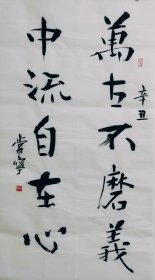 辛丑
萬古不磨義
中流自在心
常寧